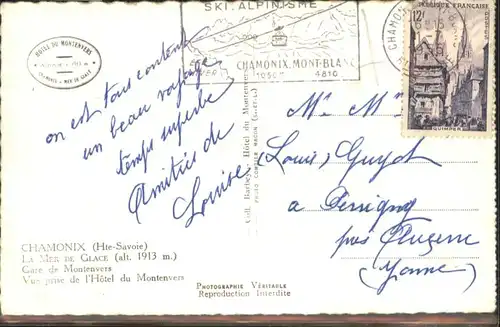 SKI.ALPINISME
CHAMONIX.MONT-BLANC
1050m 4810
CHAMONIX
12F
RÉPUBLIQUE FRANÇAISE
QUIMPER
HÔTEL DU MONTENVERS
CHAMONIX - MER DE GLACE
on est tous contents
un beau voyage
temps superbe
Amitiés de
Louise
Mr Mme
(Louis) Guyot
à Perrigny
près Auxerre
(Yonne)
Coll. Barbey, Hôtel du Montenvers
PHOTO COMBIER MACON (S.-ET-L.)
CHAMONIX (Hte-Savoie)
LA MER DE GLACE (alt. 1913 m.)
Gare de Montenvers
Vue prise de l'Hôtel du Montenvers
PHOTOGRAPHIE VÉRITABLE
Reproduction Interdite